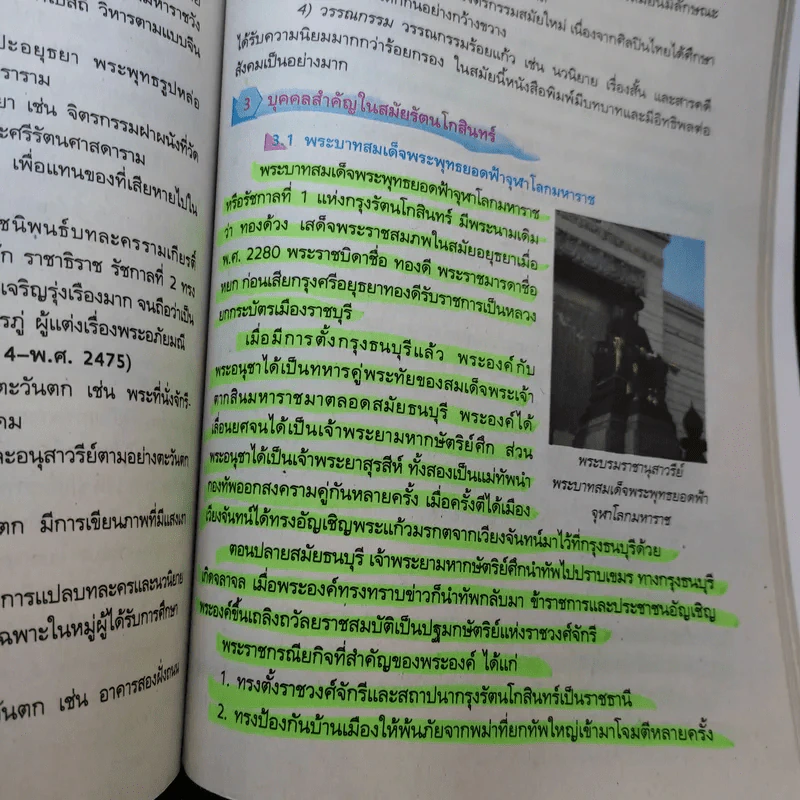 โบสถ์ วิหารตามแบบจีน
ปะอยุธยา พระพุทธรูปหล่อ
ดาราราม
ยา เช่น จิตรกรรมฝาผนังที่วัด
ะศรีรัตนศาสดาราม
เพื่อแทนของที่เสียหายไปใน
ชนิพนธ์บทละครรามเกียรติ์
ัก ราชาธิราช รัชกาลที่ 2 ทรง
เจริญรุ่งเรืองมาก จนถือว่าเป็น
รภู่ ผู้แต่งเรื่องพระอภัยมณี
4–พ.ศ. 2475)
ตะวันตก เช่น พระที่นั่งจักรี-
คม
ละอนุสาวรีย์ตามอย่างตะวันตก
ตก มีการเขียนภาพที่มีแสงเงา
การแปลบทละครและนวนิยาย
ฉพาะในหมู่ผู้ได้รับการศึกษา
วันตก เช่น อาคารสองฝั่งถนน
ตรกรรมสมัยใหม่ เนื่องจากศิลปินไทยได้ศึกษา
กันอย่างกว้างขวาง
4) วรรณกรรม วรรณกรรมร้อยแก้ว เช่น นวนิยาย เรื่องสั้น และสารคดี
ได้รับความนิยมมากกว่าร้อยกรอง ในสมัยนี้หนังสือพิมพ์มีบทบาทและมีอิทธิพลต่อ
สังคมเป็นอย่างมาก
3 บุคคลสำคัญในสมัยรัตนโกสินทร์
3.1 พระบาทสมเด็จพระพุทธยอดฟ้าจุฬาโลกมหาราช
พระบาทสมเด็จพระพุทธยอดฟ้าจุฬาโลกมหาราช
หรือรัชกาลที่ 1 แห่งกรุงรัตนโกสินทร์ มีพระนามเดิม
ว่า ทองด้วง เสด็จพระราชสมภพในสมัยอยุธยาเมื่อ
พ.ศ. 2280 พระราชบิดาชื่อ ทองดี พระราชมารดาชื่อ
หยก ก่อนเสียกรุงศรีอยุธยาทองดีรับราชการเป็นหลวง
ยกกระบัตรเมืองราชบุรี
เมื่อมีการตั้งกรุงธนบุรีแล้ว พระองค์กับ
พระอนุชาได้เป็นทหารคู่พระทัยของสมเด็จพระเจ้า
ตากสินมหาราชมาตลอดสมัยธนบุรี พระองค์ได้
เลื่อนยศจนได้เป็นเจ้าพระยามหากษัตริย์ศึก ส่วน
พระอนุชาได้เป็นเจ้าพระยาสุรสีห์ ทั้งสองเป็นแม่ทัพนำ
กองทัพออกสงครามคู่กันหลายครั้ง เมื่อครั้งตีได้เมือง
เวียงจันทน์ได้ทรงอัญเชิญพระแก้วมรกตจากเวียงจันทน์มาไว้ที่กรุงธนบุรีด้วย
พระบรมราชานุสาวรีย์
พระบาทสมเด็จพระพุทธยอดฟ้า
จุฬาโลกมหาราช
ตอนปลายสมัยธนบุรี เจ้าพระยามหากษัตริย์ศึกนำทัพไปปราบเขมร ทางกรุงธนบุรี
เกิดจลาจล เมื่อพระองค์ทรงทราบข่าวก็นำทัพกลับมา ข้าราชการและประชาชนอัญเชิญ
พระองค์ขึ้นเถลิงถวัลยราชสมบัติเป็นปฐมกษัตริย์แห่งราชวงศ์จักรี
พระราชกรณียกิจที่สำคัญของพระองค์ ได้แก่
1. ทรงตั้งราชวงศ์จักรีและสถาปนากรุงรัตนโกสินทร์เป็นราชธานี
2. ทรงป้องกันบ้านเมืองให้พ้นภัยจากพม่าที่ยกทัพใหญ่เข้ามาโจมตีหลายครั้ง